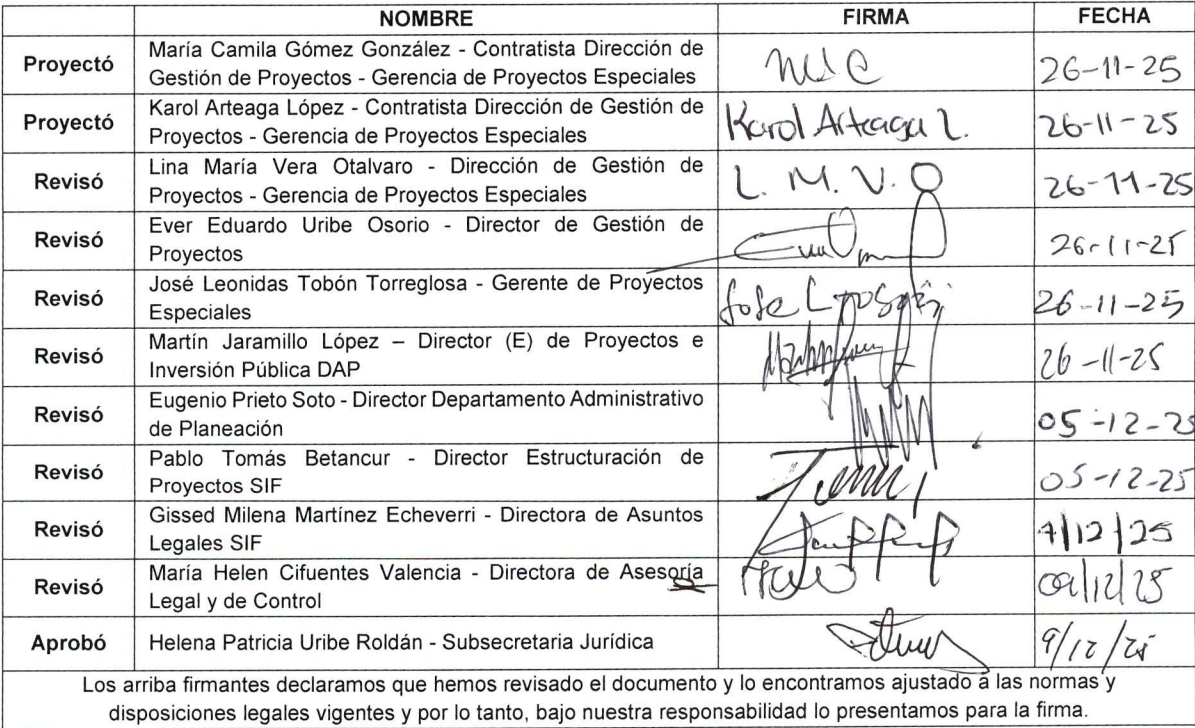 NOMBRE FIRMA FECHA
Proyectó María Camila Gómez González - Contratista Dirección de
Gestión de Proyectos - Gerencia de Proyectos Especiales 26-11-25
Proyectó Karol Arteaga López - Contratista Dirección de Gestión de
Proyectos - Gerencia de Proyectos Especiales Karol Arteaga L. 26-11-25
Revisó Lina María Vera Otalvaro - Dirección de Gestión de
Proyectos - Gerencia de Proyectos Especiales L. M. V. O 26-11-25
Revisó Ever Eduardo Uribe Osorio - Director de Gestión de
Proyectos 26-11-25
Revisó José Leonidas Tobón Torreglosa - Gerente de Proyectos
Especiales 26-11-25
Revisó Martín Jaramillo López – Director (E) de Proyectos e
Inversión Pública DAP 26-11-25
Revisó Eugenio Prieto Soto - Director Departamento Administrativo
de Planeación 05-12-25
Revisó Pablo Tomás Betancur - Director Estructuración de
Proyectos SIF 05-12-25
Revisó Gissed Milena Martínez Echeverri - Directora de Asuntos
Legales SIF 9/12/25
Revisó María Helen Cifuentes Valencia - Directora de Asesoría
Legal y de Control 09/12/25
Aprobó Helena Patricia Uribe Roldán - Subsecretaria Jurídica 9/12/25
Los arriba firmantes declaramos que hemos revisado el documento y lo encontramos ajustado a las normas y
disposiciones legales vigentes y por lo tanto, bajo nuestra responsabilidad lo presentamos para la firma.